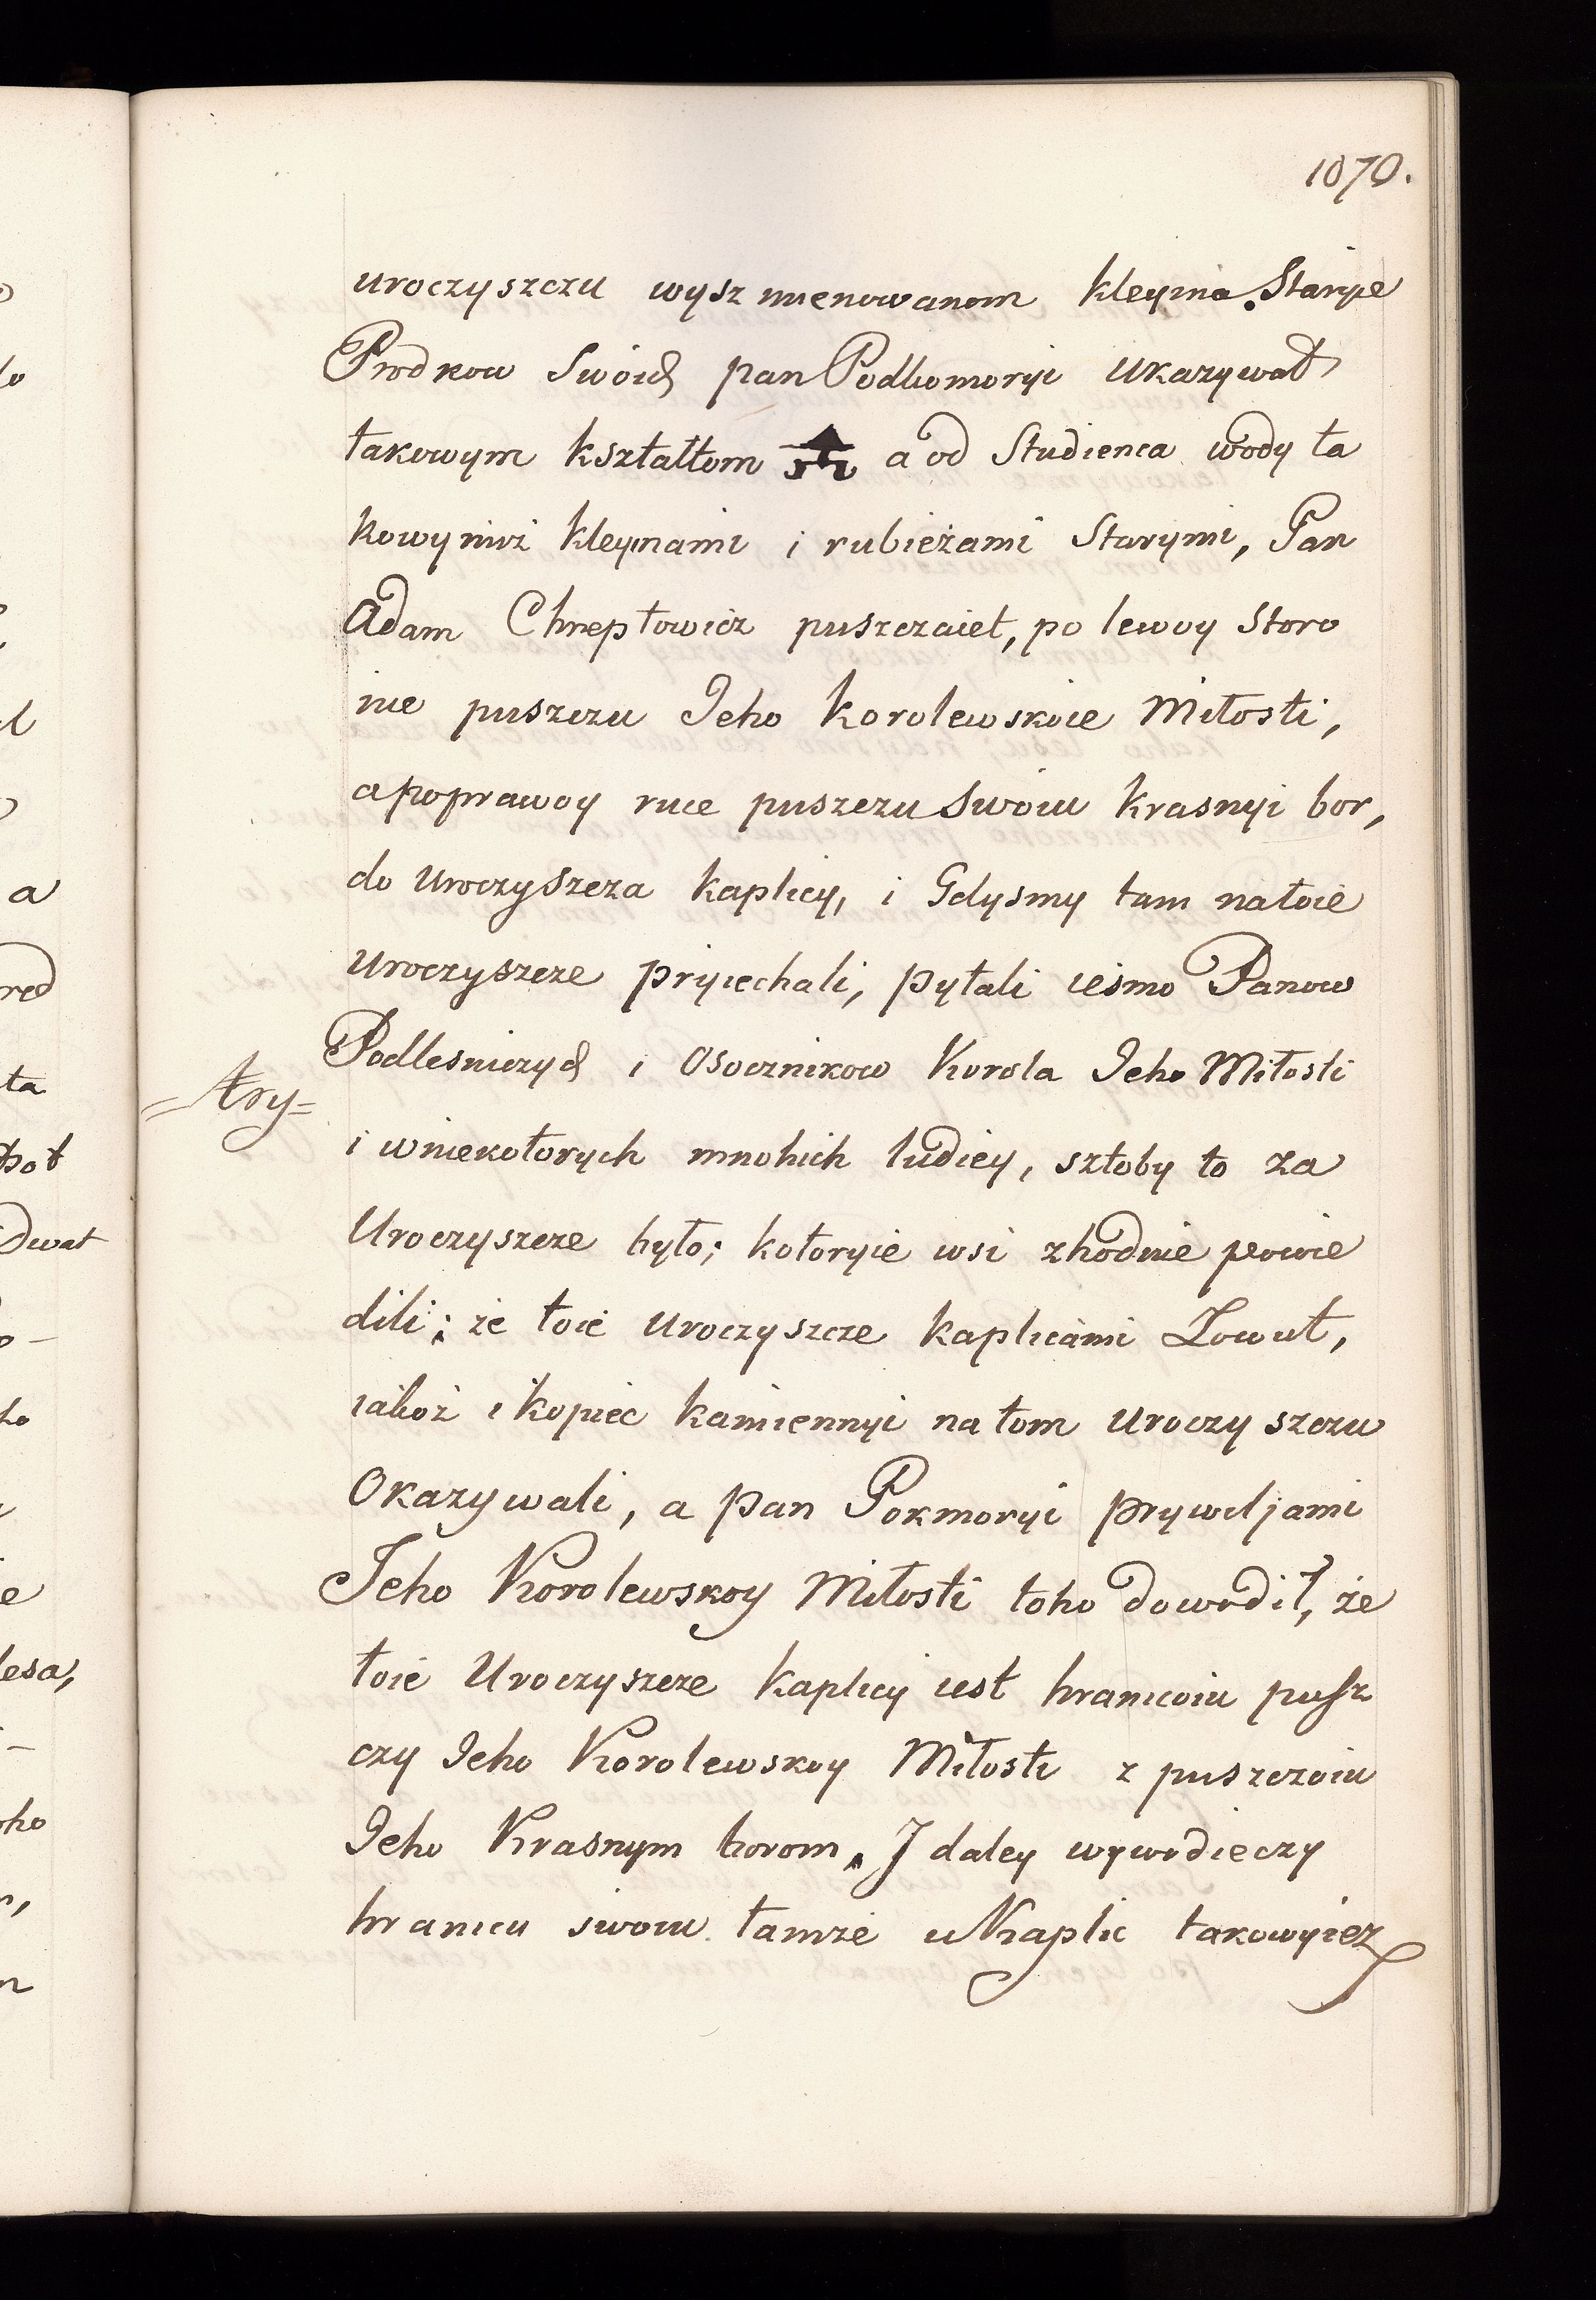 1070.
uroczyszczu wysz mienowanom kleyma Staryie
Prodkow Swoich pan Podkomoryi ukazywał
takowym kształtom a od Studienca wody ta
kowymiż kleynami i rubieżami Starymi, Pan
Adam Chreptowicz puszczaiet, po lewoy storo
nie puszczu Jeho Korolewskoie Miłosti,
a po prawoy ruce puszczu Swoiu krasnyi bor,
do uroczyszcza kaplicy, i Gdysmy tam na toie
uroczyszcze pryiechali, pytali iesmo Panow
Podlesniczych i Osocznikow Korola Jeho Miłosti
=try=
i w niekotorych mnohich ludiey, sztoby to za
Uroczyszcze było; kotoryie wsi zhodnie powie
dili; że toie uroczyszcze kaplicami Zowut,
iakoż i kopiec kamiennyi na tom uroczyszczu
Okazywali, a pan Pokmoryi prywiljami
Jeho Korolewskoy Miłosti toho dowodił, że
toie Uroczyszcze kaplicy iest hranicoiu pusz
czy Jeho Korolewskoy Miłosti z puszczoiu
Jeho Krasnym borom. I daley wywodieczy
hranicu swoiu tamże u Kaplic takowyież
red
ta
dwat
lesa,